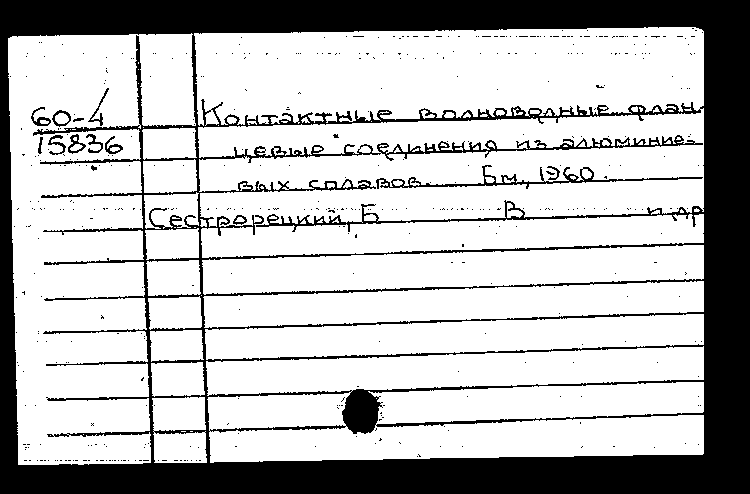 60-4 Контактные волноводные флан-
15836 цевые соединения из алюминие-
вых сплавов. Бм., 1960.
Сестрорецкий, Б В и др